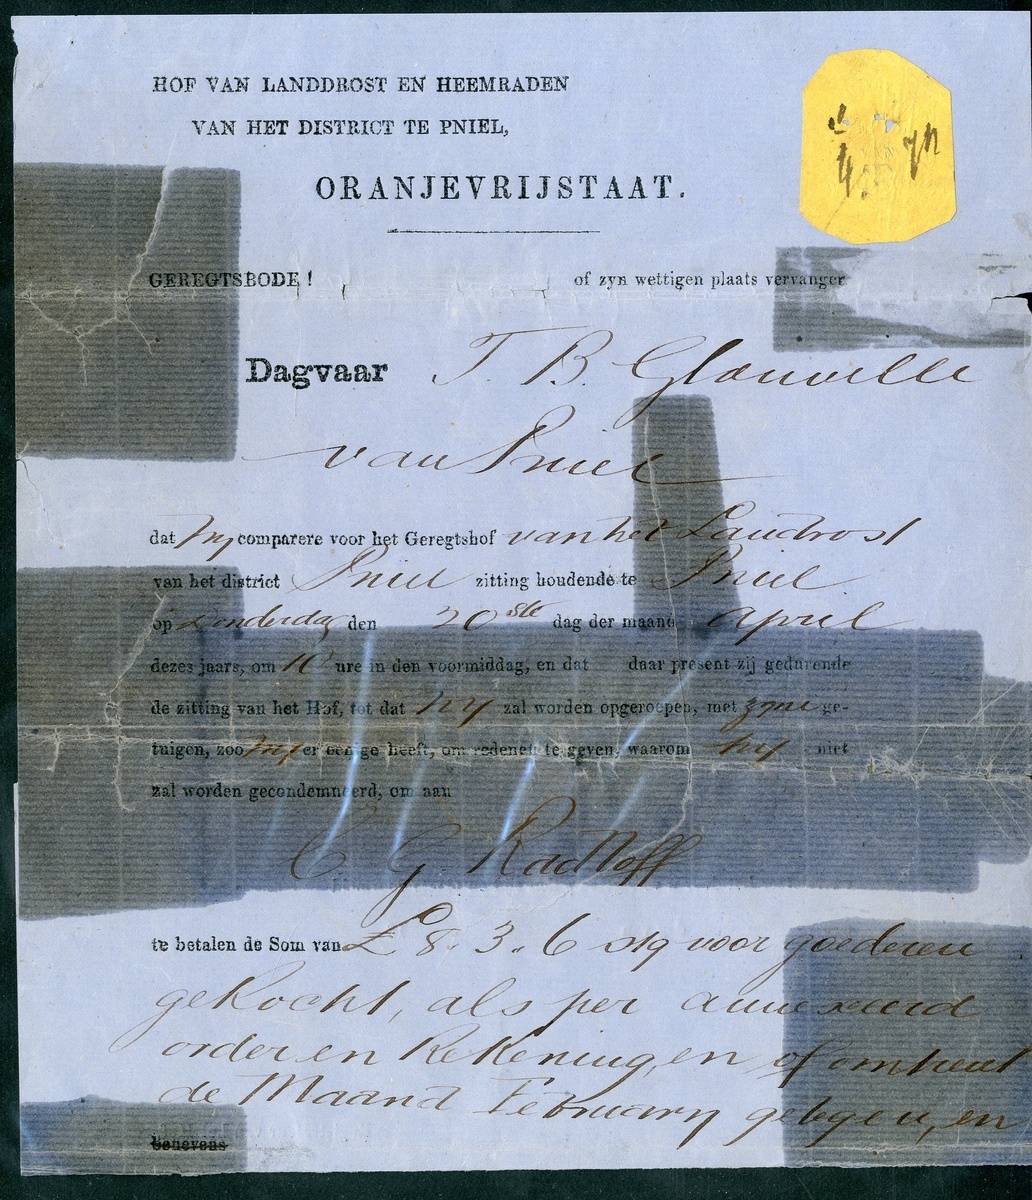 HOF VAN LANDDROST EN HEEMRADEN
VAN HET DISTRICT TE PNIEL,
ORANJEVRIJSTAAT.
GEREGTSBODE! of zyn wettigen plaats vervanger
Dagvaar T. B. Glanville
van Pniel
dat hy comparere voor het Geregtshof van het Landrost
van het district Pniel zitting houdende te Pniel
op Donderdag den 20ste dag der maand April
dezes jaars, om 10 ure in den voormiddag, en dat daar present zij gedurende
de zitting van het Hof, tot dat hy zal worden opgeroepen, met zyne ge-
tuigen, zoo hy er eenige heeft, om redenen te geven, waarom hy niet
zal worden gecondemneerd, om aan
C. G. Radloff
te betalen de Som van £ 8. 3. 6 stg voor goederen
gekocht, als per annexeerd
order en Rekening, en of omtrent
de Maand February gelegen, en
benevens